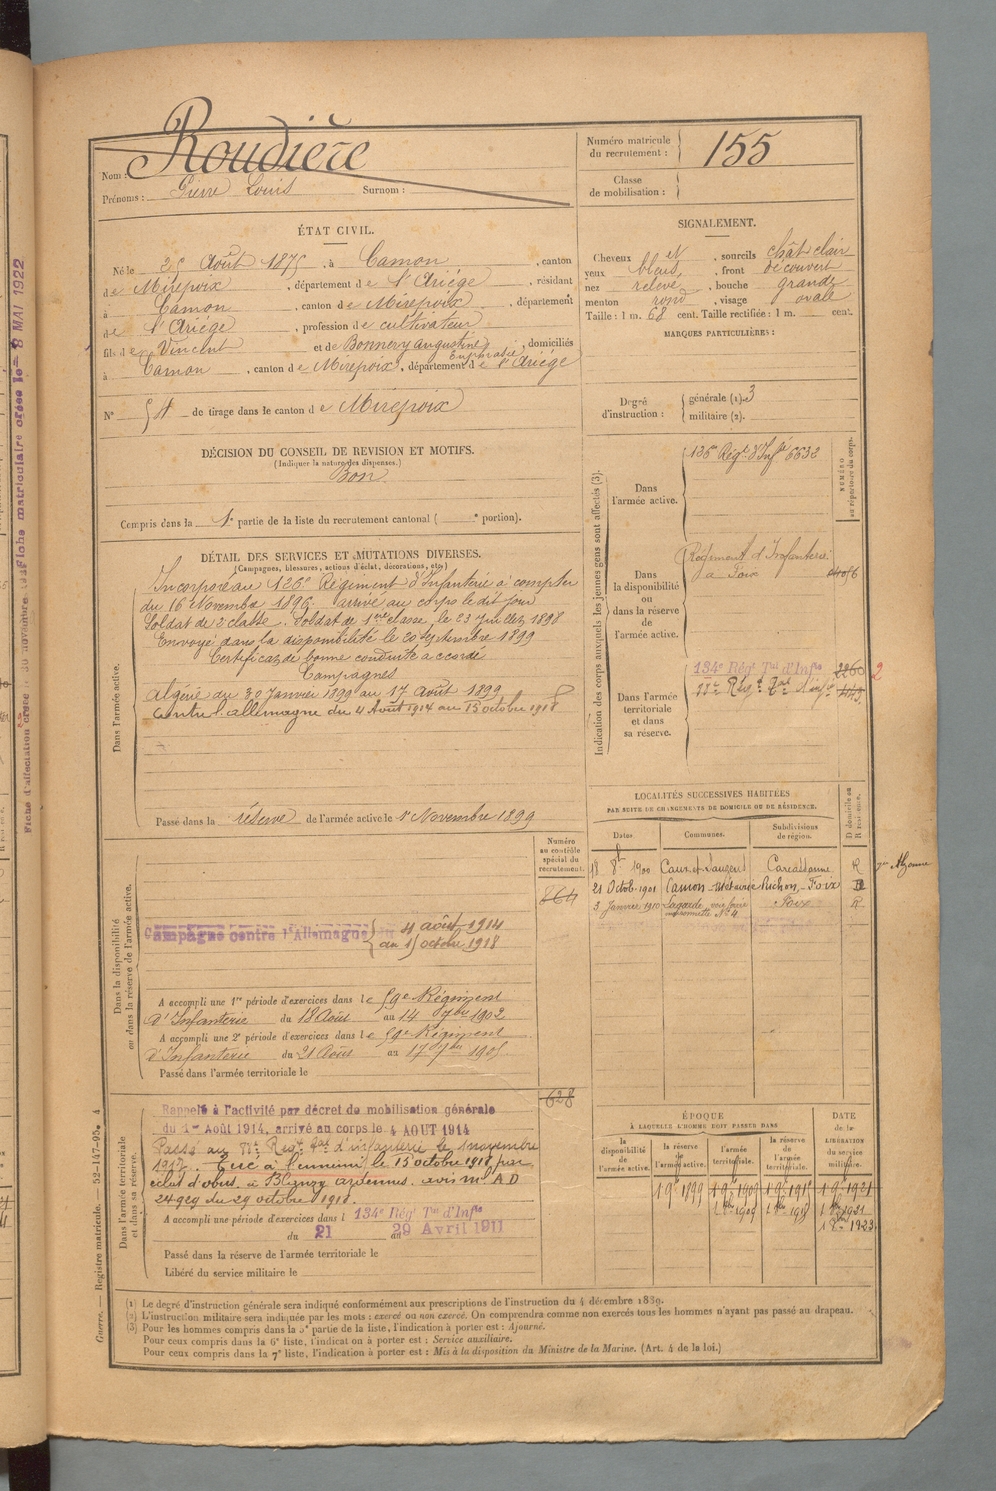 Fiche matriculaire créée le 8 MAI 1922
Nom : Roudière
Prénoms : Pierre Louis Surnom :
Numéro matricule
du recrutement : 155
Classe
de mobilisation :
ÉTAT CIVIL.
Né le 25 Août 1875, à Camon, canton
de Mirepoix, département de l'Ariége, résidant
à Camon, canton de Mirepoix, département
de l'Ariége, profession de cultivateur
fils de Vincent et de Bonnery Augustine, domiciliés
à Camon, canton de Mirepoix, département de l'Ariége
N° 54 de tirage dans le canton de Mirepoix
SIGNALEMENT.
Cheveux et, sourcils chât clair
yeux bleus, front découvert
nez relevé, bouche grande
menton rond, visage ovale
Taille : 1 m. 68 cent. Taille rectifiée : 1 m. cent.
MARQUES PARTICULIÈRES :
Degré d'instruction : générale (1). 3
militaire (2).
DÉCISION DU CONSEIL DE REVISION ET MOTIFS.
(Indiquer la nature des dispenses.)
Bon
Compris dans la 1e partie de la liste du recrutement cantonal ( e portion).
DÉTAIL DES SERVICES ET MUTATIONS DIVERSES.
(Campagnes, blessures, actions d'éclat, décorations, etc.)
Dans l'armée active.
Incorporé au 126e Régiment d'Infanterie à compter
du 16 Novembre 1896. arrivé au corps le dit jour
Soldat de 2e classe. Soldat de 1ère classe, le 23 Juillet 1898
Envoyé dans la disponibilité le 20 septembre 1899
Certificat de bonne conduite accordé
Campagnes
Algérie du 30 Janvier 1899 au 17 Août 1899
Contre l'allemagne du 4 Août 1914 au 15 octobre 1918
Passé dans la réserve de l'armée active le 1er Novembre 1899
Indication des corps auxquels les jeunes gens sont affectés (3).
NUMÉRO au répertoire du corps.
Dans l'armée active.
126e Régt d'Infie 6632
Dans la disponibilité ou dans la réserve de l'armée active.
Régiment d'Infanterie
à Foix
Dans l'armée territoriale et dans sa réserve.
134e Régt Tal d'Infie 2260 2
LOCALITÉS SUCCESSIVES HABITÉES
PAR SUITE DE CHANGEMENTS DE DOMICILE OU DE RÉSIDENCE.
Dates Communes. Subdivisions de région. D domicile ou R résidence.
18 8bre 1900 Caux et Sauzens Carcassonne R
21 Octob. 1901 Camon Foix D
3 Janvier 1910 Lagarde Foix R
Dans la disponibilité ou dans la réserve de l'armée active.
Numéro au contrôle spécial du recrutement.
864
Campagne contre l'Allemagne 4 août 1914
au 15 octobre 1918
A accompli une 1re période d'exercices dans le 59e Régiment
d'Infanterie du 18 Août au 14 7bre 1902
A accompli une 2e période d'exercices dans le 59e Régiment
d'Infanterie du 21 Août au 17 7bre 1905
Passé dans l'armée territoriale le
628
Dans l'armée territoriale et dans sa réserve.
Rappelé à l'activité par décret de mobilisation générale
du 1er Août 1914, arrivé au corps le 4 AOUT 1914
Passé au Regt Tal d'infanterie le 1 novembre
1917. Tué à l'ennemi le 15 octobre 1918 par
éclat d'obus, à Blanzy ardennes. avis ml AD
24929 du 29 octobre 1918.
A accompli une période d'exercices dans l 134e Régt Tal d'Infie
du 21 au 29 Avril 1911
Passé dans la réserve de l'armée territoriale le
Libéré du service militaire le
ÉPOQUE
À LAQUELLE L'HOMME DOIT PASSER DANS
DATE de la LIBÉRATION du service militaire.
la disponibilité de l'armée active. la réserve de l'armée active. l'armée territoriale. la réserve de l'armée territoriale.
1 9e 1899 1 9e 1909 1 9e 1915 1 9e 1921
1 8bre 1909 1 8bre 1915 1 8bre 1921
1923
(1) Le degré d'instruction générale sera indiqué conformément aux prescriptions de l'instruction du 4 décembre 1889.
(2) L'instruction militaire sera indiquée par les mots : exercé ou non exercé. On comprendra comme non exercés tous les hommes n'ayant pas passé au drapeau.
(3) Pour les hommes compris dans la 5e partie de la liste, l'indication à porter est : Ajourné.
Pour ceux compris dans la 6e liste, l'indication à porter est : Service auxiliaire.
Pour ceux compris dans la 7e liste, l'indication à porter est : Mis à la disposition du Ministre de la Marine. (Art. 4 de la loi.)
Guerre. — Registre matricule. 52-147-95. 4